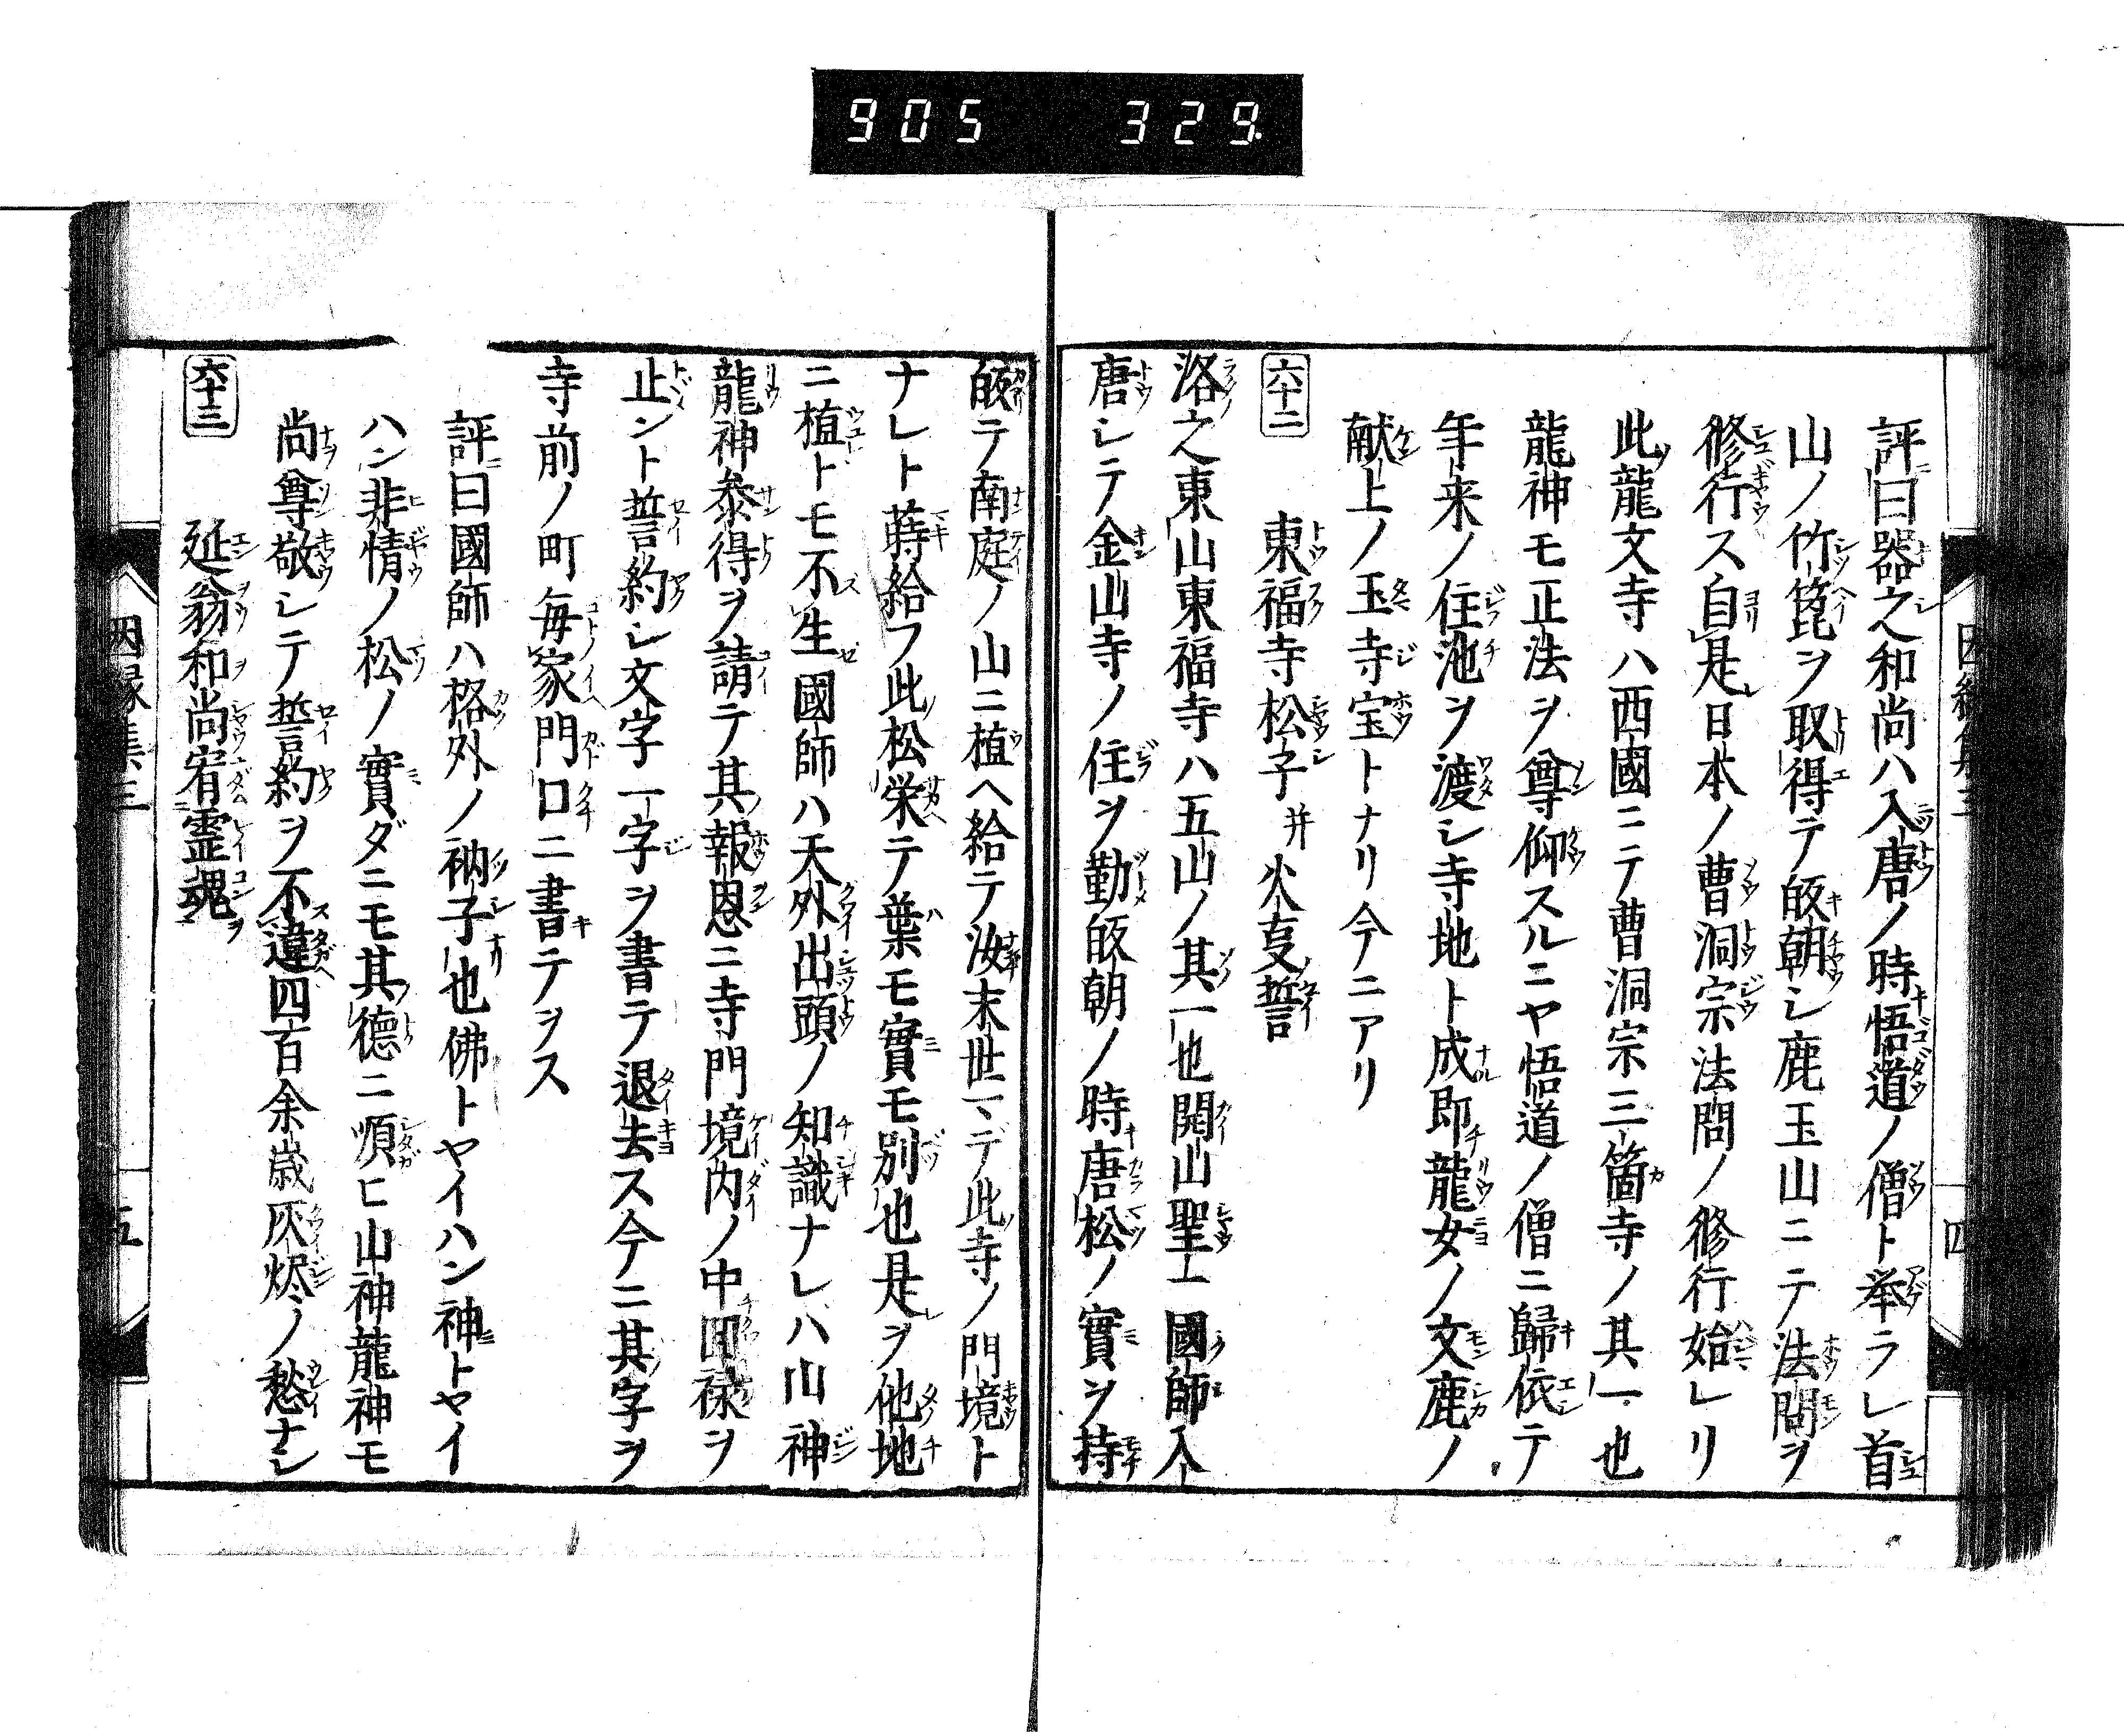 905 329
評曰器之和尚ハ入唐ノ時悟道ノ僧ト挙ラレ首
山ノ竹箆ヲ取得テ皈朝シ鹿玉山ニテ法問ヲ
修行ス自是日本ノ曹洞宗法問ノ修行始レリ
此龍文寺ハ西國ニテ曹洞宗三箇寺ノ其一也
龍神モ正法ヲ尊仰スルニヤ悟道ノ僧ニ歸依テ
年来ノ住池ヲ渡シ寺地ト成即龍女ノ文鹿ノ
献上ノ玉寺宝トナリ今ニアリ
六十二
東福寺松子并火叓誓
洛之東山東福寺ハ五山ノ其一也開山聖一國師入
唐シテ金山寺ノ住ヲ勤皈朝ノ時唐松ノ實ヲ持
皈テ南庭ノ山ニ植ヘ給テ汝末世マデ此寺ノ門境ト
ナレト蒔給フ此松栄テ葉モ實モ別也是ヲ他地
ニ植トモ不生國師ハ天外出頭ノ知識ナレハ山神
龍神参得ヲ請テ其報恩ニ寺門境内ノ中回禄ヲ
止ント誓約シ文字一字ヲ書テ退去ス今ニ其字ヲ
寺前ノ町毎家門口ニ書テヲス
評曰國師ハ格外ノ衲子也佛トヤイハン神トヤイ
ハン非情ノ松ノ實ダニモ其德ニ順ヒ山神龍神モ
尚尊敬シテ誓約ヲ不違四百余歳灰燼ノ愁ナシ
六十三
延翁和尚宥霊魂
因縁集三
五
四